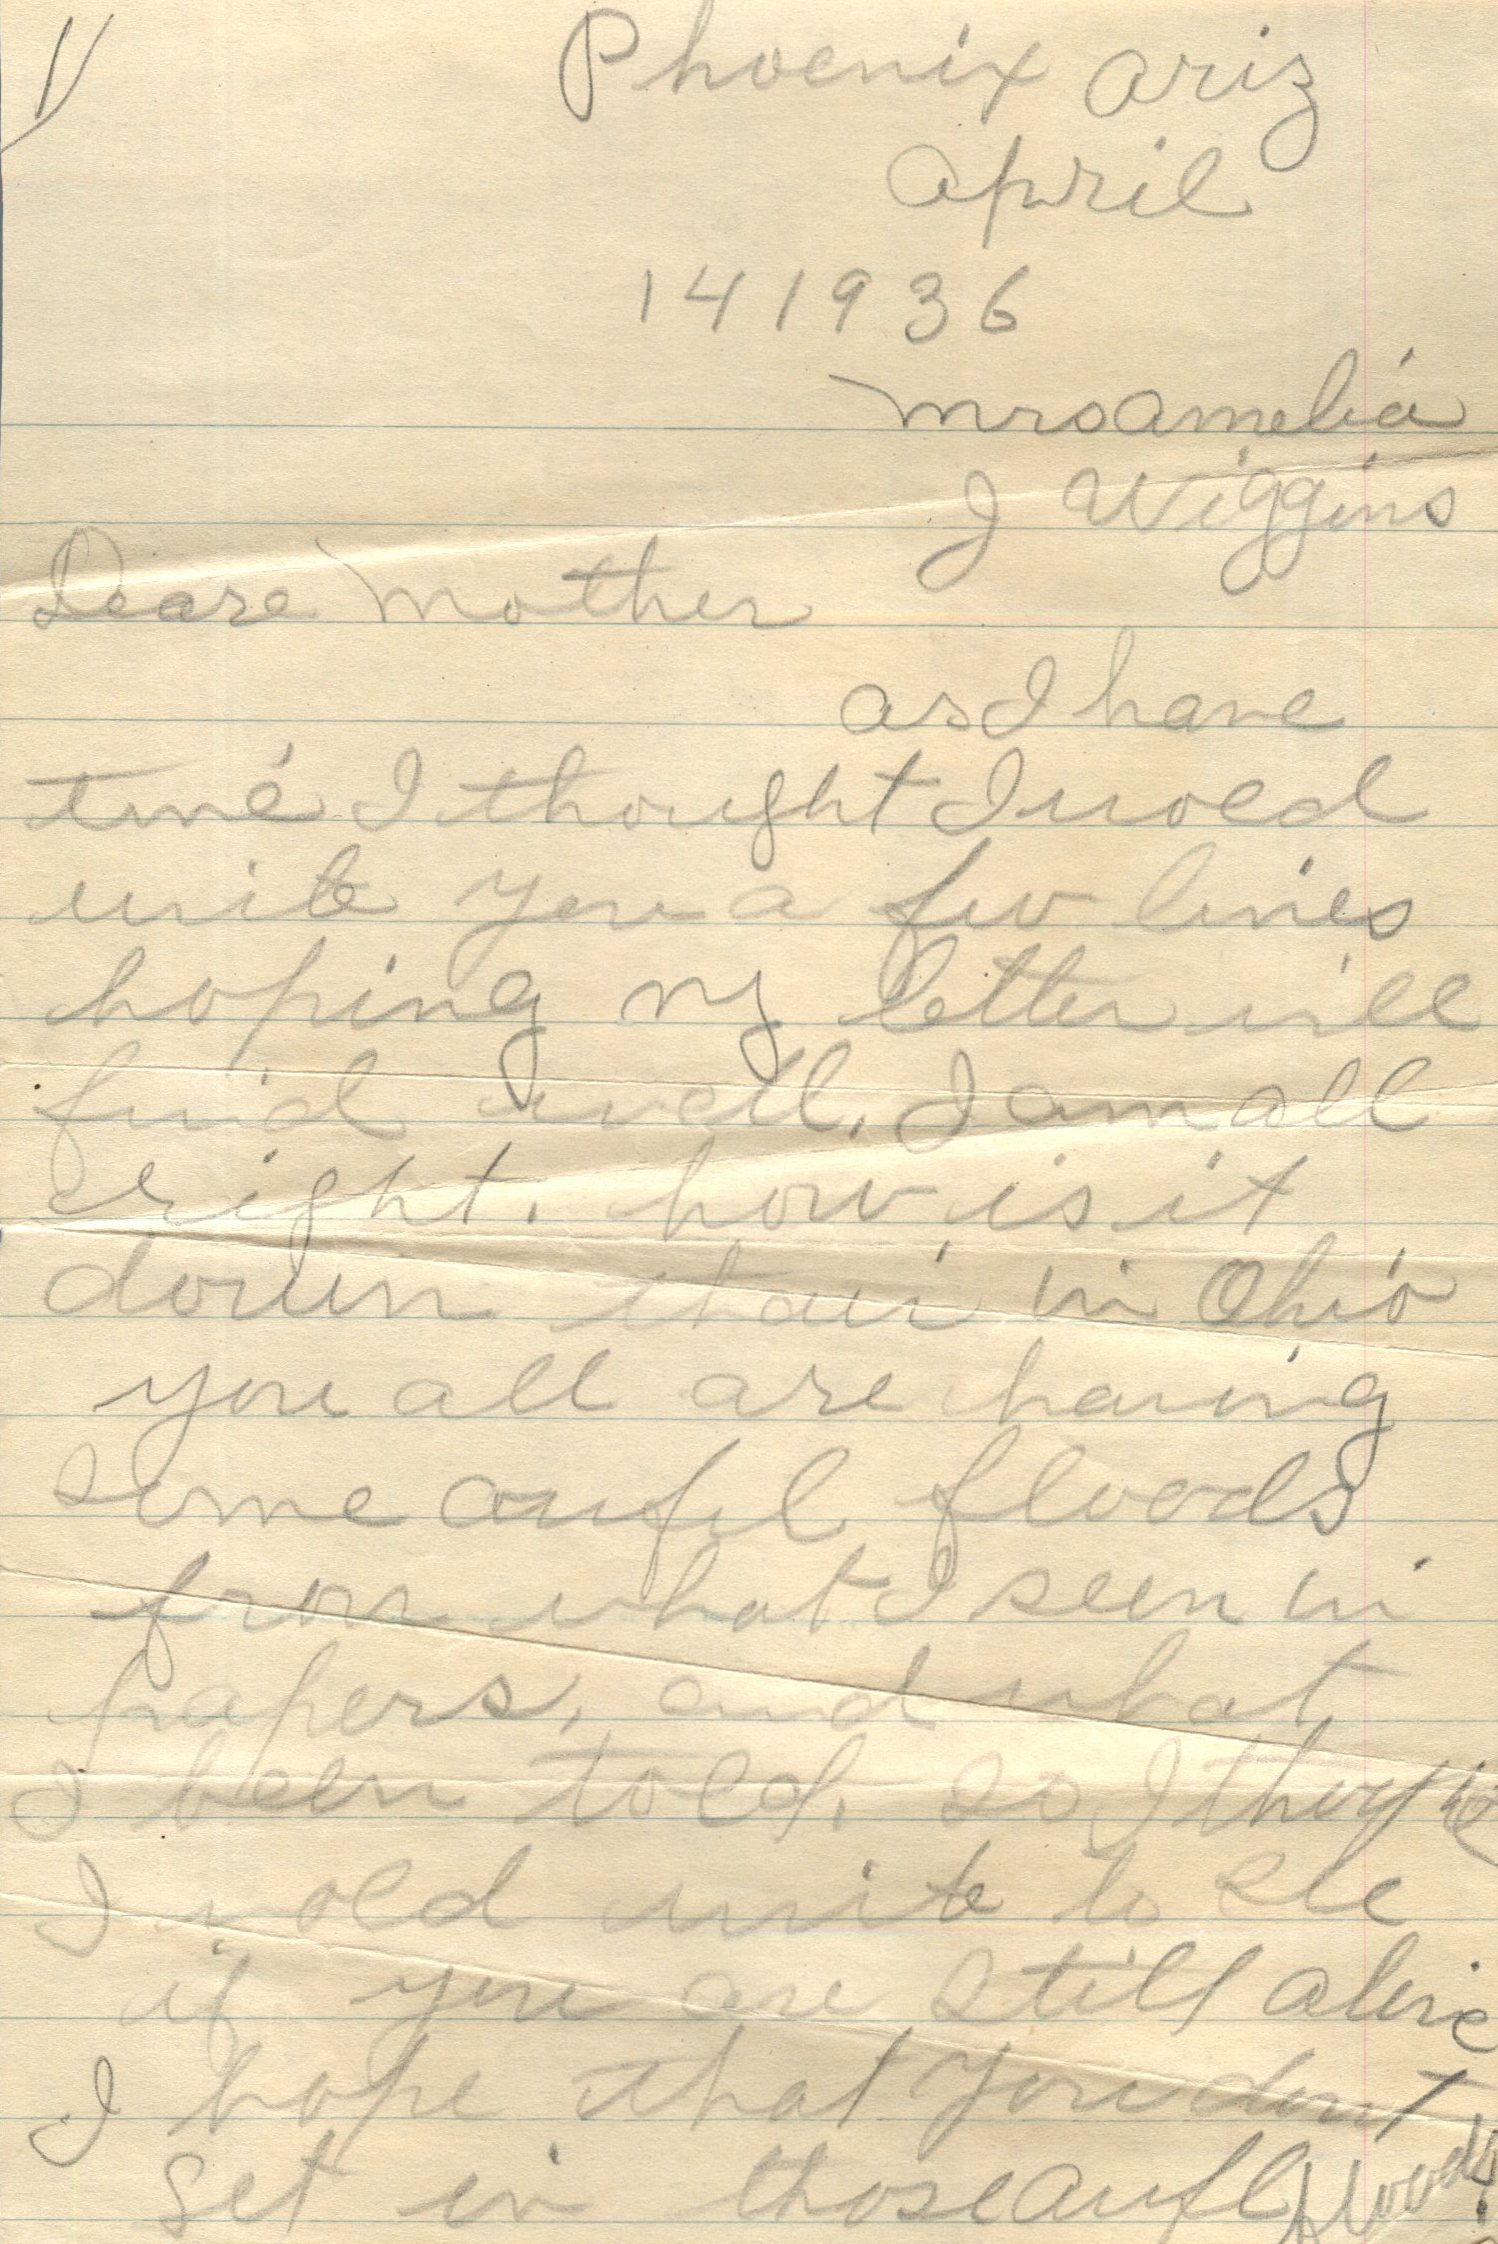 1/
Phoenix Ariz
April
14 1936
Mrs Amelia
J Wiggins
Deare Mother
as I have
time I thought I woed
write you a few lines
hoping my letter will
find well. I am all
right. how is it
down thair in Ohio
you all are having
some aufil floods
from what I seen in
papers. and what
I been told. so I
I wold write to see
if you are still alive
I hope that you dont
get in those aufl floods